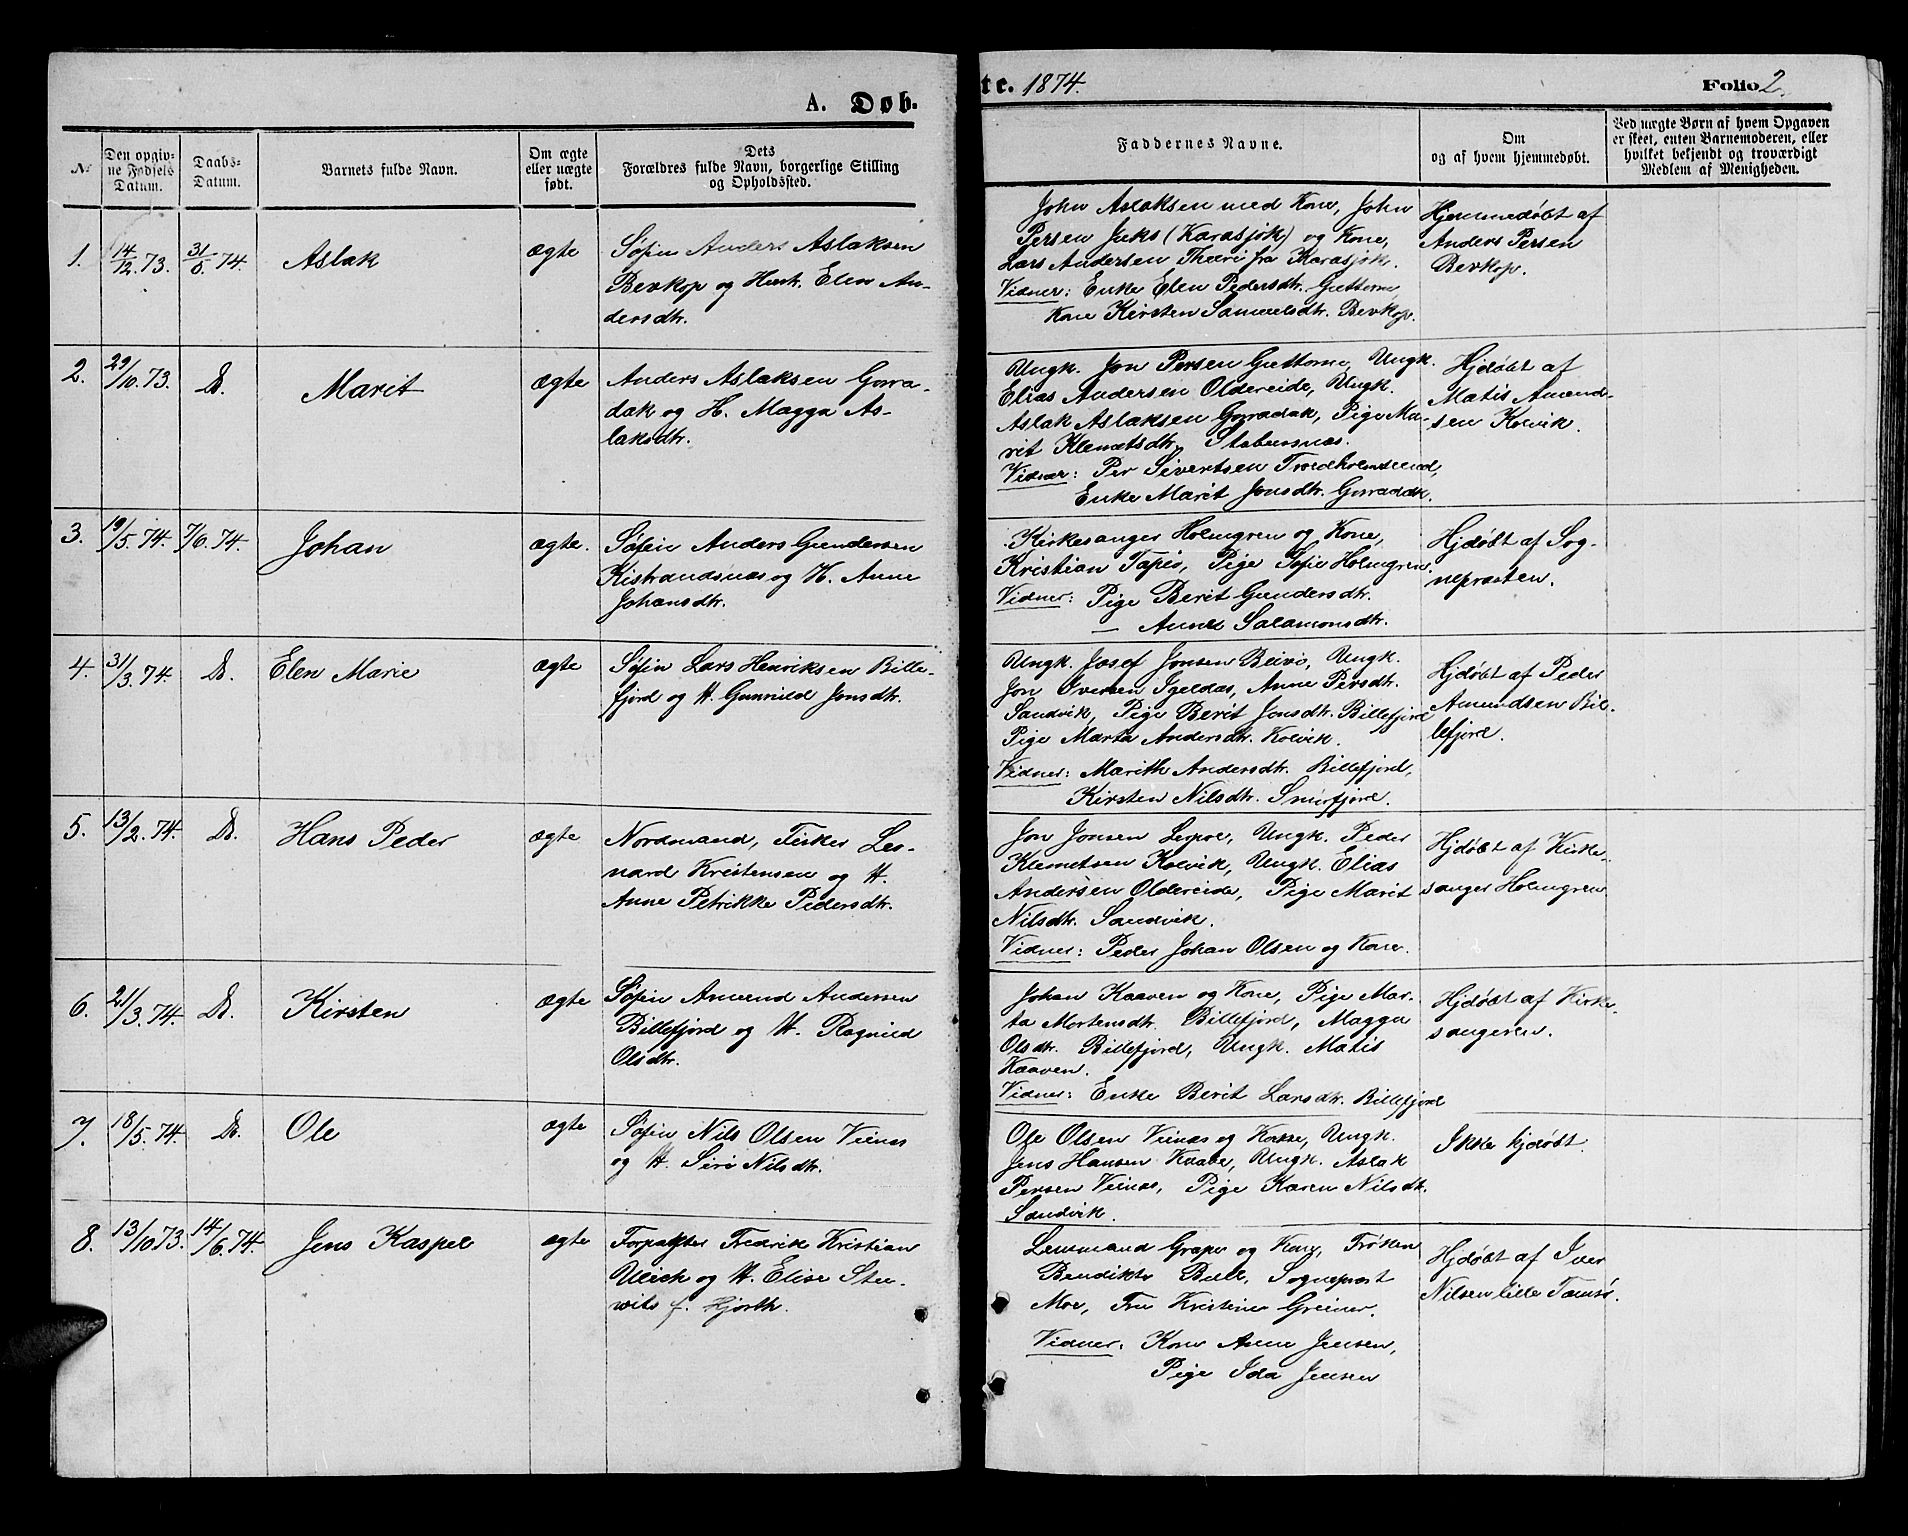 A. Døb-
te. 1874.
Folio 2.
№
Den opgiv-
ne Fødsels
Datum.
Daabs-
Datum.
Barnets fulde Navn.
Om ægte
eller uægte
født.
Dets
Forældres fulde Navn, borgerlige Stilling
og Opholdssted.
Faddernes Navne.
Om
og af hvem hjemmedøbt.
Ved uægte Børn af hvem Opgaven
er skeet, enten Barnemoderen, eller
hvilket bekjendt og troværdigt
Medlem af Menigheden.
1. 14/12. 73. 31/5 74. Aslak ægte
Søfin Anders Aslaksen
Bevkop og Hust. Elen An-
dersdtr.
John Aslaksen med Kone, John
Persen Juks (Karasjok) og Kone,
Lars Andersen Thuri fra Karasjok.
Vidner: Enke Elen Pedersdtr. Gættorne
Kone Kirsten Samuelsdtr. Bevkop.
Hjemmedøbt af
Anders Persen
Bevkop.
2. 29/10. 73. D. Marit ægte
Anders Aslaksen Gorra-
dak og H. Magga As-
laksdtr.
Ungk. Jon Persen Gættorne, Ungk.
Elias Andersen Oldereide, Ungk.
Aslak Aslaksen Gorradak, Pige Ma-
rit Klemetsdtr. Stabursnæs.
Vidner: Per Sivertsen Troldholmsund,
Enke Marit Jonsdtr. Gorradak.
Hjdøbt af
Matis Amund-
sen Kolvik.
3. 19/5. 74. 7/6. 74. Johan ægte.
Søfin Anders Gundersen
Kistrandsnæs og H. Anne
Johansdtr.
Kirkesanger Holmgren og Kone,
Kristian Tapio, Pige Sofie Holmgren.
Vidner: Pige Berit Gundersdtr.
— Anne Salamonsdtr.
Hjdøbt af Sog-
nepræsten.
4. 31/3. 74. D. Elen Marie ægte
Søfin Lars Henriksen Bille-
fjord og H. Gunnild Jonsdtr.
Ungk. Josef Jonsen Beivo, Ungk.
Jon Iversen Igeldas, Anne Persdtr.
Sandvik, Pige Berit Jonsdtr. Billefjord
Pige Marta Andersdtr. Kolvik.
Vidner: Marith Andersdtr. Billefjord,
Kirsten Nilsdtr. Smørfjord.
Hjdøbt af Peder
Amundsen Bil-
lefjord.
5. 13/2. 74. D. Hans Peder ægte
Nordmand, Fisker Leo-
nard Kristensen og H.
Anne Petrikke Pedersdtr.
Jon Jonsen Lerpoe, Ungk. Peder
Klemetsen Kolvik, Ungk. Elias
Andersen Oldereide, Pige Marit
Nilsdtr. Sandvik.
Vidner: Peder Johan Olsen og Kone.
Hjdøbt af Kirke-
sanger Holmgren
6. 21/3. 74. D. Kirsten ægte
Søfin Amund Andersen
Billefjord og H. Ragnild
Olsdtr.
Johan Kaaven og Kone, Pige Mar-
ta Mortensdtr. Billefjord, Magga
Olsdtr. Billefjord, Ungk. Matis
Kaaven.
Vidner: Enke Berit Larsdtr. Billefjord
Hjdøbt af Kirke-
sangeren.
7. 18/5. 74. D. Ole ægte
Søfin Nils Olsen Veinæs
og H. Siri Nilsdtr.
Ole Olsen Veinæs og Kone, Ungk.
Jens Hansen Kaabe, Ungk. Aslak
Persen Veinæs, Pige Karen Nilsdtr.
Sandvik.
Ikke hjdøbt.
8. 13/10 73. 14/6. 74. Jens Kasper ægte
Forpagter Fredrik Kristian
Ulrich og H. Elise Stu-
wits f. Hjorth.
Lensmand Grape og Kone, Frøken
Bendikte Bull, Sognepræst
Moe, Fru Kristine Greiner.
Vidner: Kone Anne Jensen,
Pige Ida Jensen
Hjdøbt af Iver
Nilsen lille Tamsø.